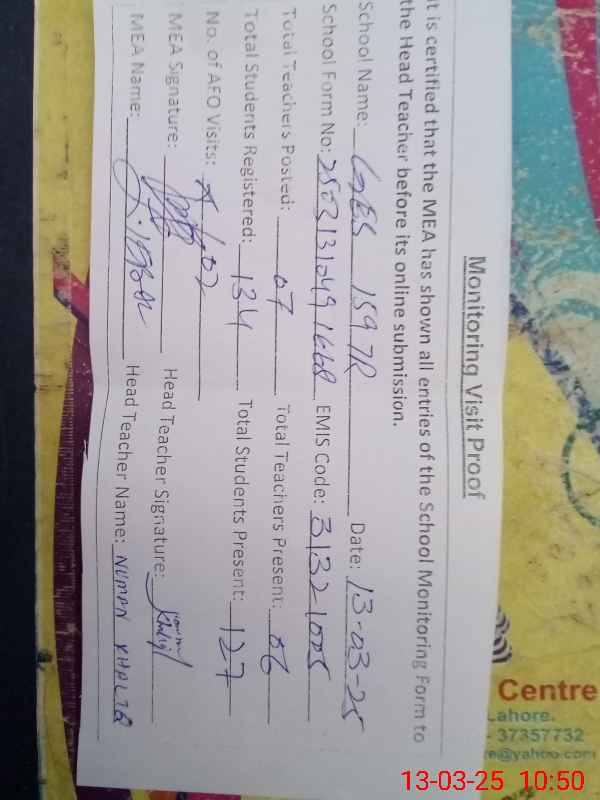 Monitoring Visit Proof
It is certified that the MEA has shown all entries of the School Monitoring Form to
the Head Teacher before its online submission.
School Name: GES 159 7R Date: 13-03-25
School Form No: EMIS Code: 31321005
Total Teachers Posted: 07 Total Teachers Present: 06
Total Students Registered: 134 Total Students Present: 127
No. of AFO Visits:
MEA Signature: Head Teacher Signature:
MEA Name: Head Teacher Name: NUMAN KHALIQ
Centre
Lahore.
- 37357732
re@yahoo.com
13-03-25 10:50